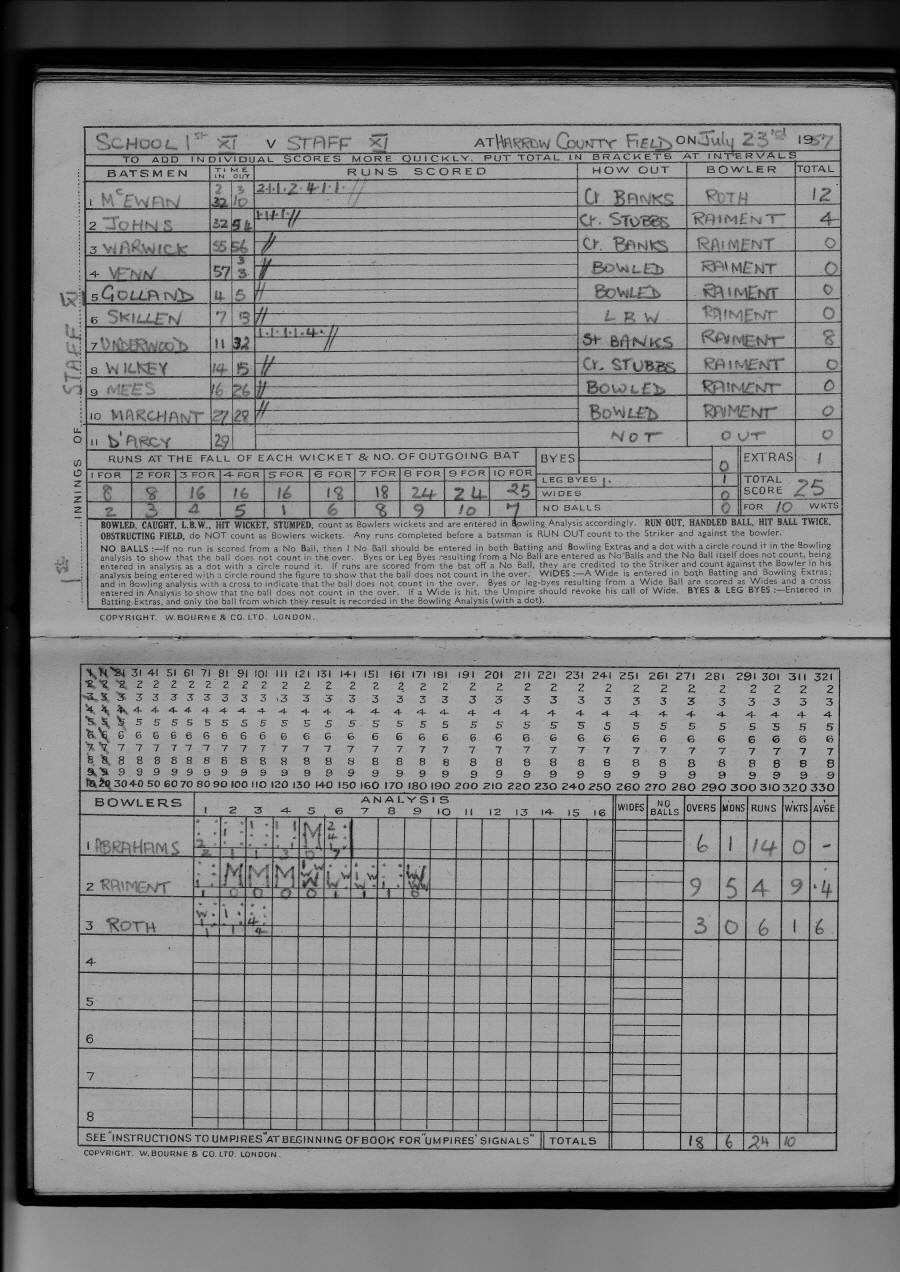 SCHOOL 1st XI V STAFF XI AT HARROW COUNTY FIELD ON July 23rd 1957
TO ADD INDIVIDUAL SCORES MORE QUICKLY, PUT TOTAL IN BRACKETS AT INTERVALS
BATSMEN TIME IN OUT RUNS SCORED HOW OUT BOWLER TOTAL
1 McEWAN 2 32 3 10 2.1.1.2.4.1.1. // Ct. BANKS ROTH 12
2 JOHNS 32 54 1.1.1.1 // Ct. STUBBS RAIMENT 4
3 WARWICK 55 56 // Ct. BANKS RAIMENT 0
4 VENN 57 3 3 // BOWLED RAIMENT 0
5 GOLLAND 4 5 // BOWLED RAIMENT 0
6 SKILLEN 7 13 // L B W RAIMENT 0
7 UNDERWOOD 11 32 1.1.1.1.4. // St BANKS RAIMENT 8
8 WILKEY 14 15 // Ct. STUBBS RAIMENT 0
9 MEES 16 26 // BOWLED RAIMENT 0
10 MARCHANT 27 28 // BOWLED RAIMENT 0
11 D'ARCY 29 NOT OUT 0
INNINGS OF STAFF XI 1st
RUNS AT THE FALL OF EACH WICKET & NO. OF OUTGOING BAT BYES 0 EXTRAS 1
1 FOR 2 FOR 3 FOR 4 FOR 5 FOR 6 FOR 7 FOR 8 FOR 9 FOR 10 FOR LEG BYES 1. 1 TOTAL SCORE 25
8 8 16 16 16 18 18 24 24 25 WIDES 0
2 3 4 5 1 6 8 9 10 7 NO BALLS 0 FOR 10 WKTS
BOWLED, CAUGHT, L.B.W., HIT WICKET, STUMPED, count as Bowlers wickets and are entered in Bowling Analysis accordingly. RUN OUT, HANDLED BALL, HIT BALL TWICE,
OBSTRUCTING FIELD, do NOT count as Bowlers wickets. Any runs completed before a batsman is RUN OUT count to the Striker and against the bowler.
NO BALLS :—If no run is scored from a No Ball, then 1 No Ball should be entered in both Batting and Bowling Extras and a dot with a circle round it in the Bowling
analysis to show that the ball does not count in the over. Byes or Leg Byes resulting from a No Ball are entered as No Balls and the No Ball itself does not count, being
entered in analysis as a dot with a circle round it. If runs are scored from the bat off a No Ball, they are credited to the Striker and count against the Bowler in his
analysis being entered with a circle round the figure to show that the ball does not count in the over. WIDES :—A Wide is entered in both Batting and Bowling Extras;
and in Bowling analysis with a cross to indicate that the ball does not count in the over. Byes or leg-byes resulting from a Wide Ball are scored as Wides and a cross
entered in Analysis to show that the ball does not count in the over. If a Wide is hit, the Umpire should revoke his call of Wide. BYES & LEG BYES :—Entered in
Batting Extras, and only the ball from which they result is recorded in the Bowling Analysis (with a dot).
COPYRIGHT. W. BOURNE & CO. LTD. LONDON.
1 11 21 31 41 51 61 71 81 91 101 111 121 131 141 151 161 171 181 191 201 211 221 231 241 251 261 271 281 291 301 311 321
2 2 2 2 2 2 2 2 2 2 2 2 2 2 2 2 2 2 2 2 2 2 2 2 2 2 2 2 2 2 2 2 2
3 3 3 3 3 3 3 3 3 3 3 3 3 3 3 3 3 3 3 3 3 3 3 3 3 3 3 3 3 3 3 3 3
4 4 4 4 4 4 4 4 4 4 4 4 4 4 4 4 4 4 4 4 4 4 4 4 4 4 4 4 4 4 4 4 4
5 5 5 5 5 5 5 5 5 5 5 5 5 5 5 5 5 5 5 5 5 5 5 5 5 5 5 5 5 5 5 5 5
6 6 6 6 6 6 6 6 6 6 6 6 6 6 6 6 6 6 6 6 6 6 6 6 6 6 6 6 6 6 6 6 6
7 7 7 7 7 7 7 7 7 7 7 7 7 7 7 7 7 7 7 7 7 7 7 7 7 7 7 7 7 7 7 7 7
8 8 8 8 8 8 8 8 8 8 8 8 8 8 8 8 8 8 8 8 8 8 8 8 8 8 8 8 8 8 8 8 8
9 9 9 9 9 9 9 9 9 9 9 9 9 9 9 9 9 9 9 9 9 9 9 9 9 9 9 9 9 9 9 9 9
10 20 30 40 50 60 70 80 90 100 110 120 130 140 150 160 170 180 190 200 210 220 230 240 250 260 270 280 290 300 310 320 330
BOWLERS ANALYSIS WIDES NO BALLS OVERS M'DNS RUNS WKTS AV'GE
1 2 3 4 5 6 7 8 9 10 11 12 13 14 15 16
1 ABRAHAMS 2 1 1 3 0 7 6 1 14 0 -
2 RAIMENT 1 0 0 0 0 1 1 1 0 9 5 4 9 .4
3 ROTH 1 1 4 3 0 6 1 6
4
5
6
7
8
SEE "INSTRUCTIONS TO UMPIRES" AT BEGINNING OF BOOK FOR "UMPIRES' SIGNALS" TOTALS 18 6 24 10
COPYRIGHT. W. BOURNE & CO. LTD. LONDON.